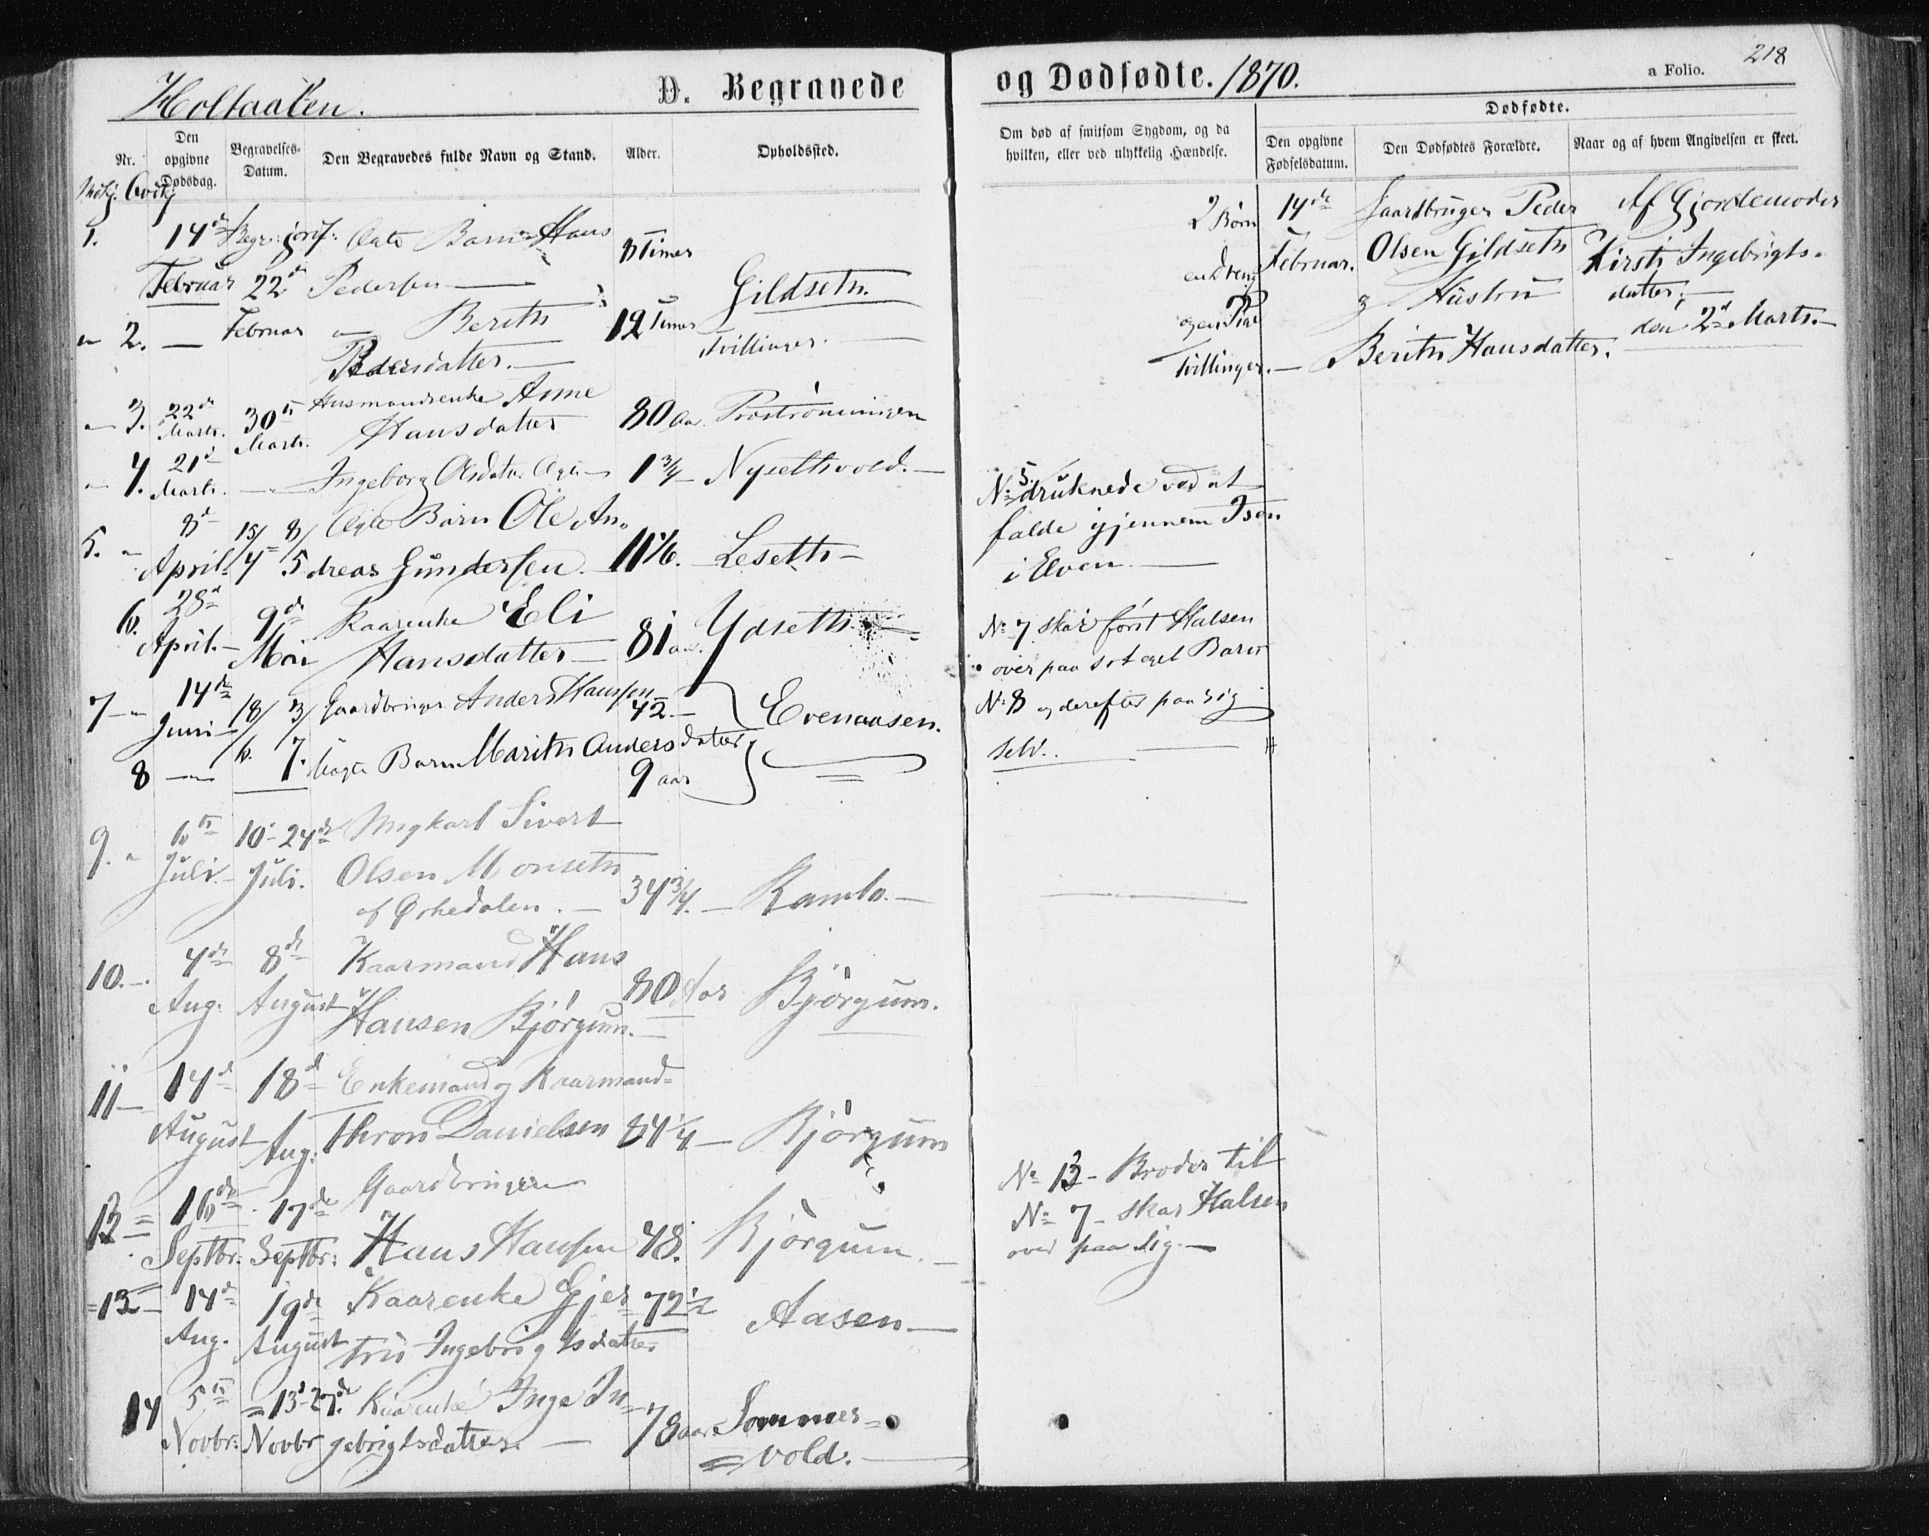 218
Holtaalen.
D. Begravede
og Dødfødte. 1870.
a Folio.
Nr.
Mdkj. Qvdkj
Den opgivne Dødsdag.
Begravelses-Datum.
Den Begravedes fulde Navn og Stand.
Alder.
Opholdssted.
Om død af smitsom Sygdom, og da hvilken, eller ved ulykkelig Hændelse.
Dødfødte.
Den opgivne Fødselsdatum.
Den Dødfødtes Forældre.
Naar og af hvem Angivelsen er skeet.
1. 14de Begr: Jordf: Ægte Barn Hans
Februar 22de Pedersen 8 Timer
Gildseth.
2. Februar Berith 12 Timer
Pedersdatter. Tvillinger.
3. 22de 30te Husmandsenke Anne 80 Aar
Marts. Marts. Hansdatter
4. 21de Ingeborg Olsdatter Ægte 1 3/4 Nysethvold.
Marts.
5. 8de 15/4 8/5 Ægte Barn Ole An-
April. dreas Gundersen 11 1/6. Leseth
6. 28de 9de Kaarenke Eli
April. Mai Hansdatter 81 aar. Ydseth
7 14de 18/6. 3/7. Gaardbruger Anders Hansen 42. Evenaasen.
Juni
8 Uægte Barn Marith Anders datter
9 aar
9. 6te 10-24de Ungkarl Sivert
Juli. Juli. Olsen Monseth
af Ørkedalen. 34 3/4. Ramlo.
10. 4de 8de Kaarmand Hans
Aug. August Hansen Bjørgum. 80 Aar Bjørgum.
11 14de 18de Enkemand og Kaarmand
August Aug. Thron Danielsen 84 1/4 Bjørgum
13 16de 17de Gaardbruger
Septbr. Septbr: Hans Hansen 48. Bjørgum.
12 14de 19de Kaarenke Gjer- 72 1/2 Aasen
Aug. August trud Ingebrigtsdatter
14 5te 13de-27de Kaarenke Inge In-
Novbr: Novbr gebrigtsdatter. 78 aar Sommer-
vold.
2 Børn
en Dreng
og en Pige
Tvillinger.
14de
Februar.
Gaardbruger Peder
Olsen Gildseth
og Hustru
Berith Hansdatter.
Af Gjordemoder
Kirsti Ingebrigts-
datter.
den 2de Marts.
No 5. druknede ved at
falde igjennem Isen
i Elven.
No 7 skar først Halsen
over paa sit eget Barn
No 8 og derefter paa sig
selv.
No 13 - Broder til
No 7 - skar Halsen
over paa sig.